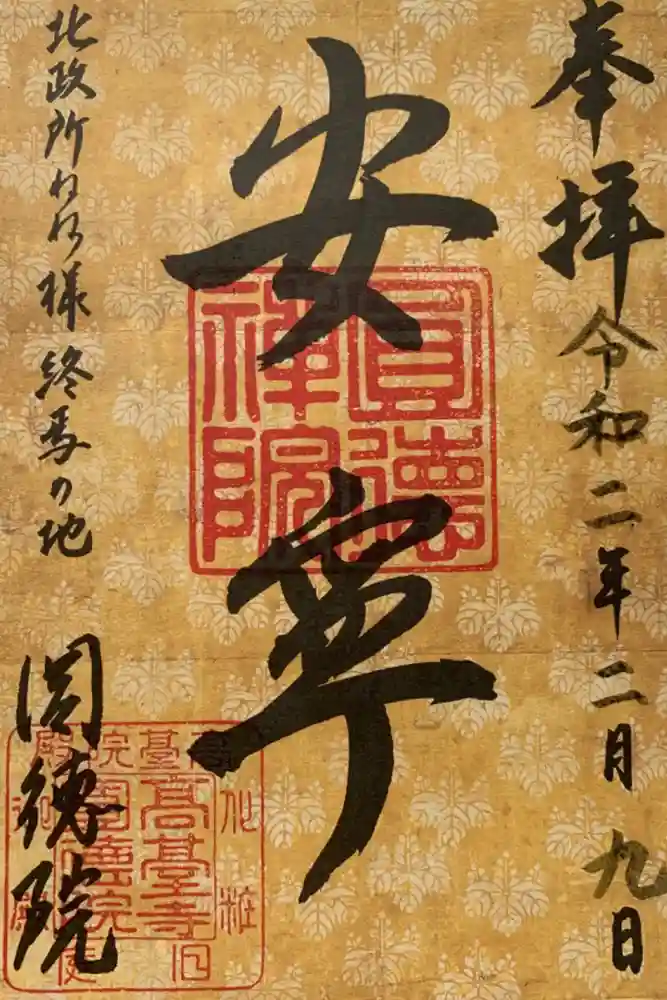 奉拝 令和二年二月九日
安寧
圓徳禅院
北政所ねね様 終焉の地
圓徳院
高臺寺
圓徳院